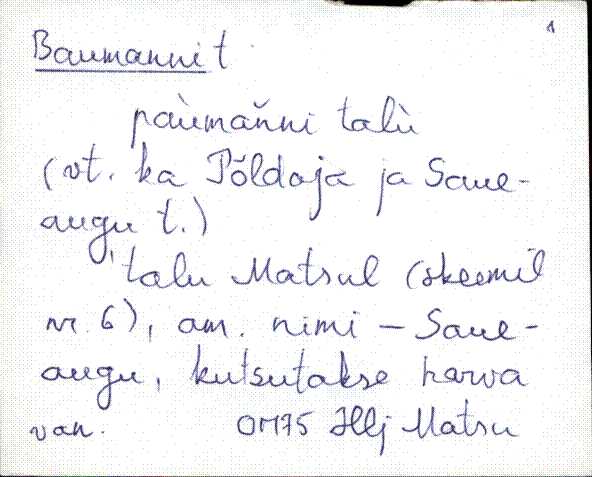 1
Baumanni t.
paùmaňni talù
(vt. ka Põldoja ja Saue-
augu t.)
'talu Matsul (skeemil
nr. 6), am. nimi – Saue-
augu, kutsutakse harva
van. OM75 Hlj Matsu